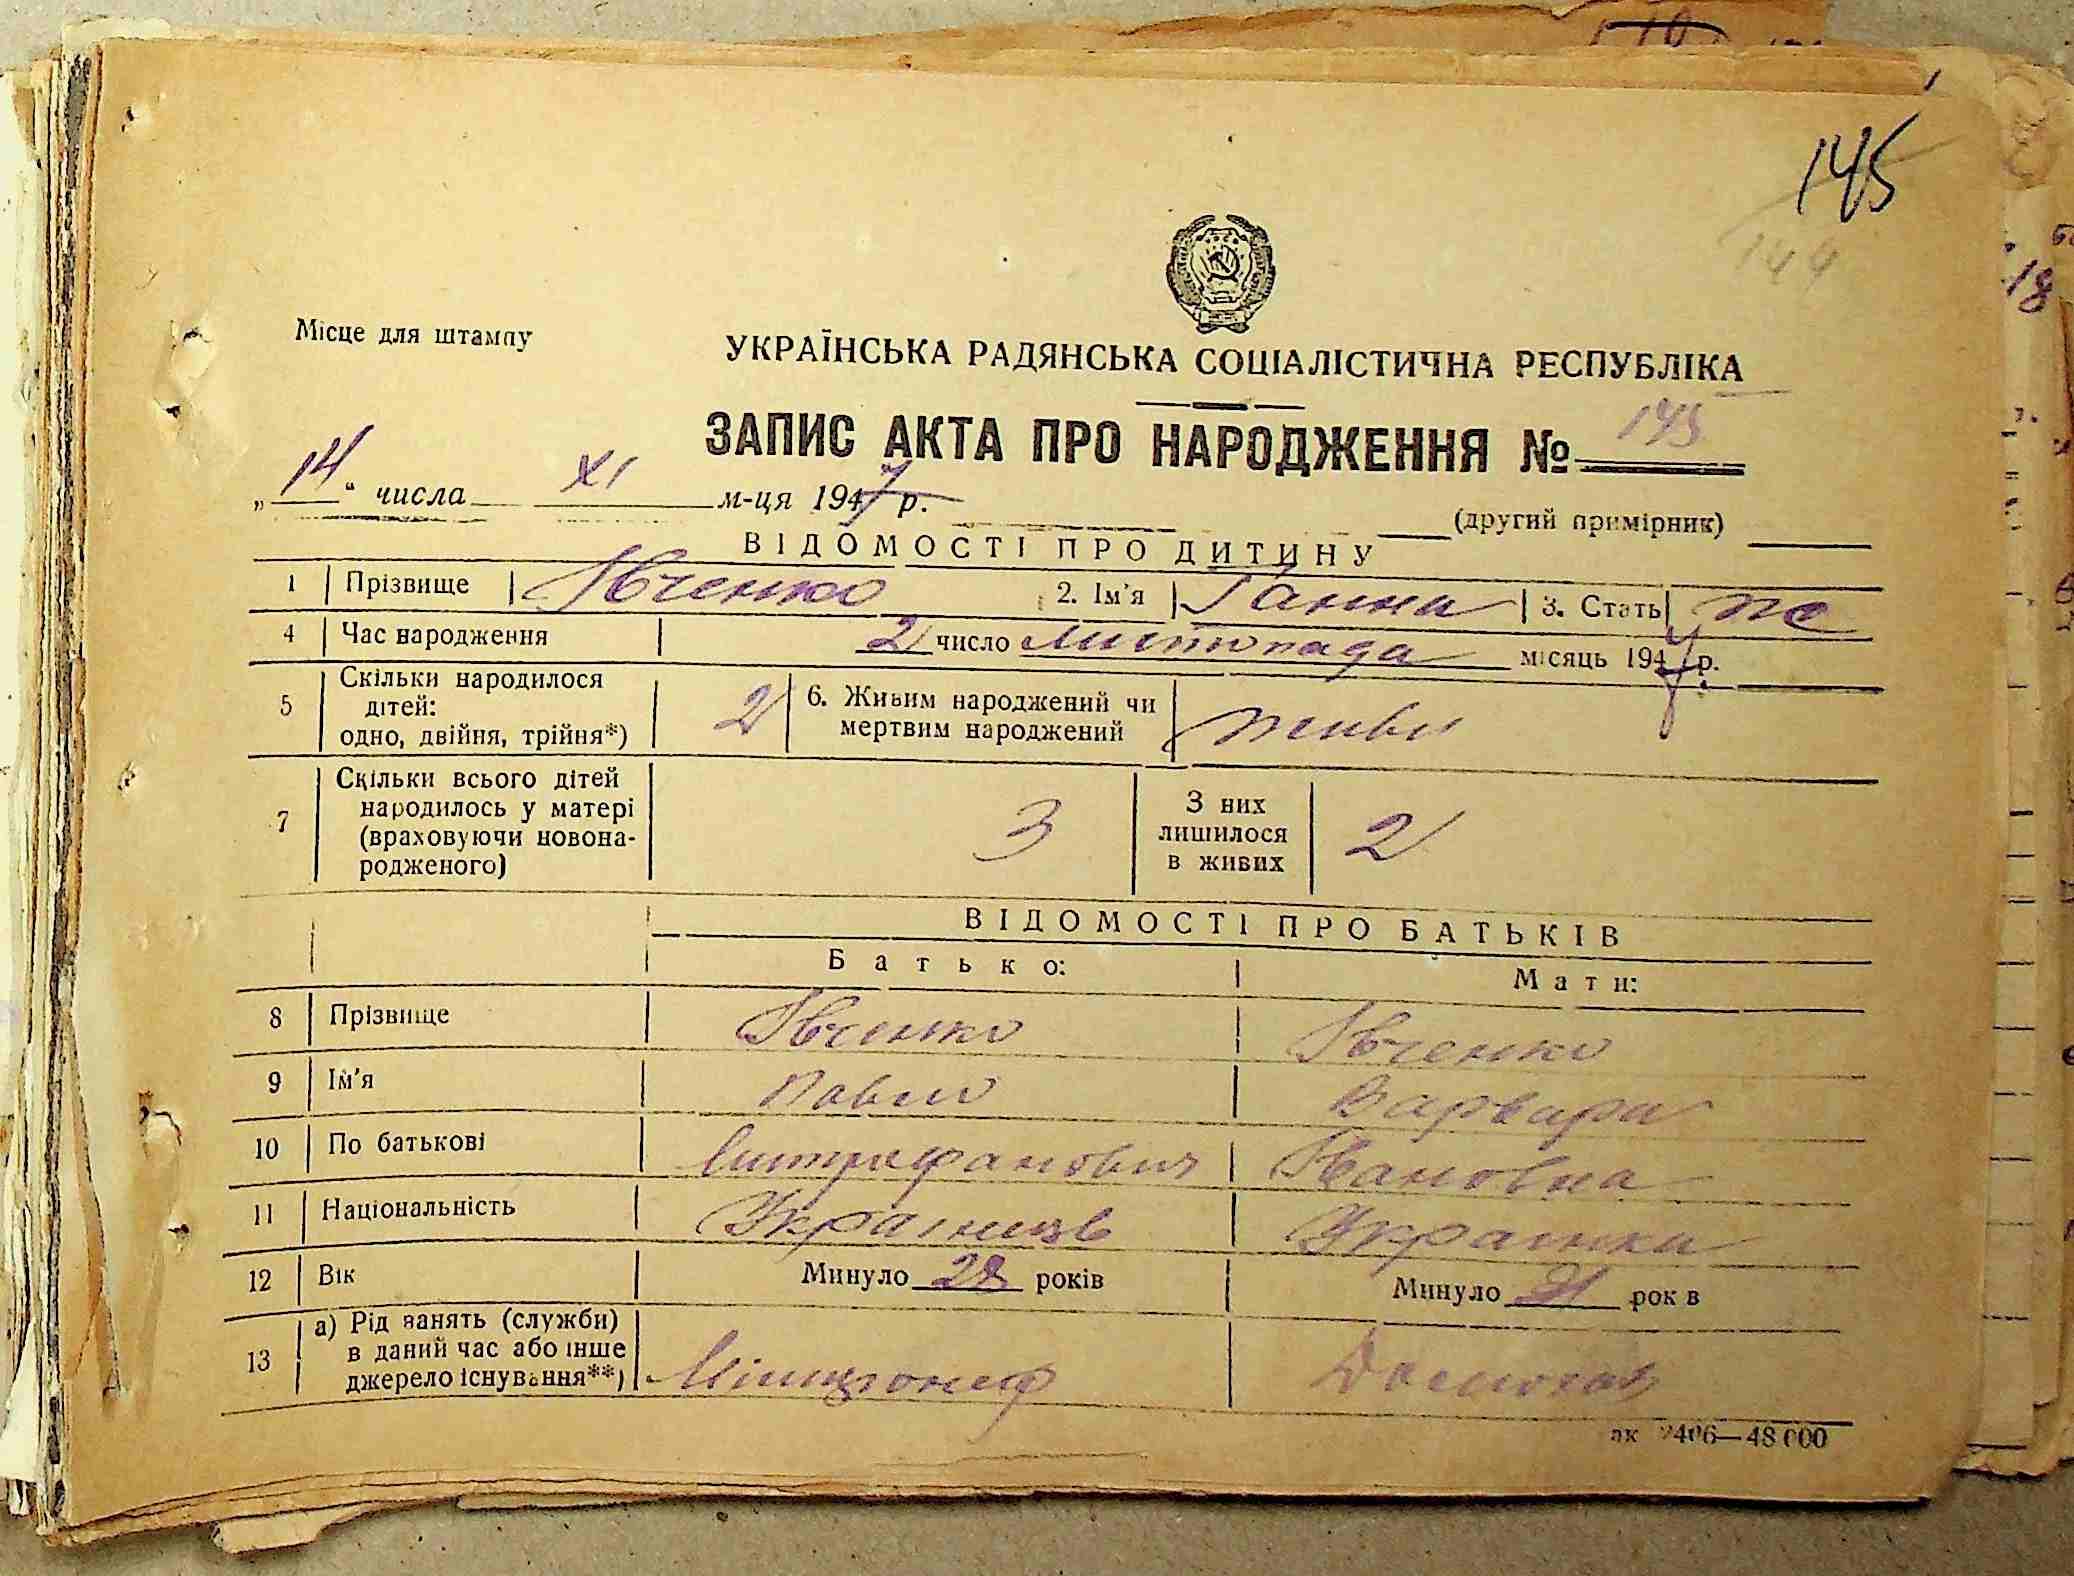 145
144
Місце для штампу
УКРАЇНСЬКА РАДЯНСЬКА СОЦІАЛІСТИЧНА РЕСПУБЛІКА
ЗАПИС АКТА ПРО НАРОДЖЕННЯ № 145
„14“ числа XI м-ця 1947 р.
(другий примірник)
ВІДОМОСТІ ПРО ДИТИНУ
1 Прізвище Івченко 2. Ім'я Ганна 3. Стать ж
4 Час народження 2 число листопада місяць 1947 р.
5 Скільки народилося
дітей:
одно, двійня, трійня*) 2
6. Живим народжений чи
мертвим народжений живи
7 Скільки всього дітей
народилось у матері
(враховуючи новона-
родженого) 3
З них
лишилося
в живих 2
ВІДОМОСТІ ПРО БАТЬКІВ
Батько: Мати:
8 Прізвище Івченко Івченко
9 Ім'я Павло Варвара
10 По батькові Митрофанович Івановна
11 Національність Українець Українка
12 Вік Минуло 28 років Минуло рок в
13 а) Рід занять (служби)
в даний час або інше
джерело існування**)
18